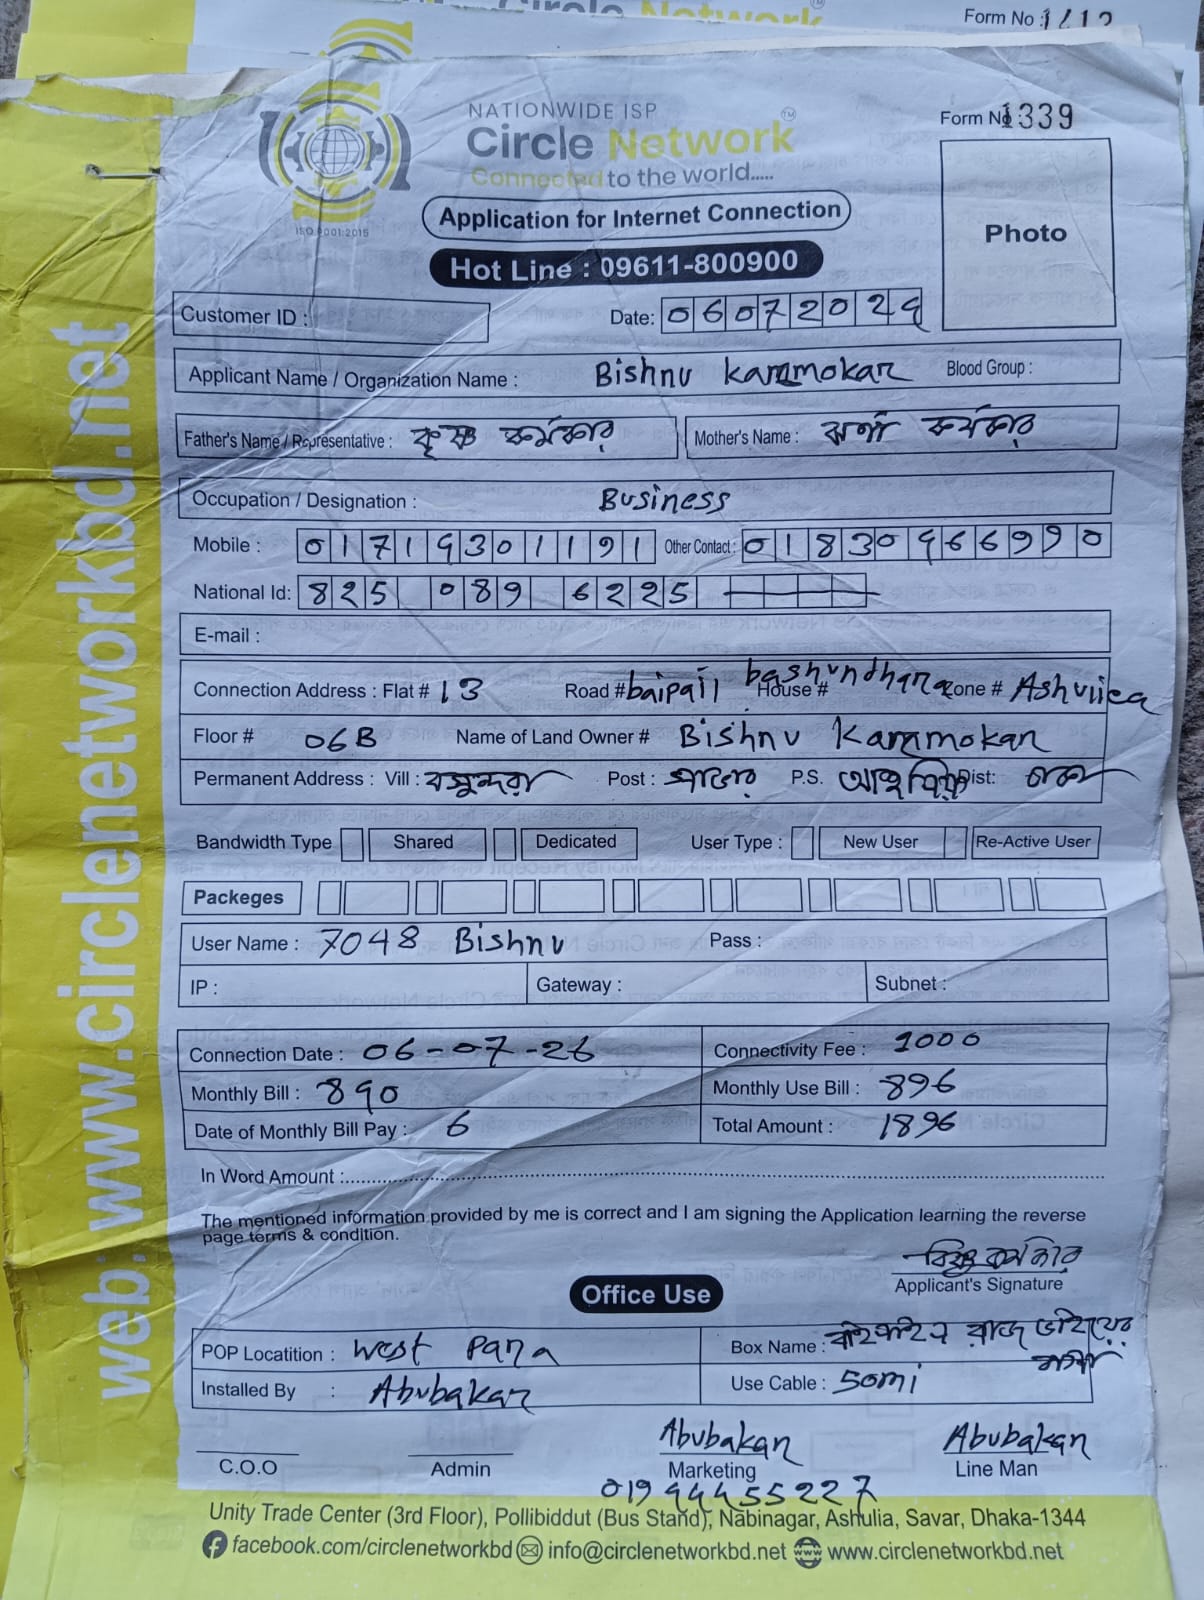 Circle Network
Form No :1412
NATIONWIDE ISP
Circle Network™
Connected to the world.....
ISO 9001:2015
Form No 1339
Photo
Application for Internet Connection
Hot Line : 09611-800900
Customer ID :
Date: 06072024
Applicant Name / Organization Name : Bishnu Karamokar Blood Group :
Father's Name / Representative : কৃষ্ণ কর্মকার Mother's Name : ঝর্ণা কর্মকার
Occupation / Designation : Business
Mobile : 01719301191 Other Contact : 01830966990
National Id: 825 089 6225
E-mail :
Connection Address : Flat # 13 Road # baipail House # bashundhara Zone # Ashuliea
Floor # 06B Name of Land Owner # Bishnu Karamokar
Permanent Address : Vill : বসুন্দরা Post : সাভার P.S. আশুলিয়া Dist: ঢাকা
Bandwidth Type Shared Dedicated User Type : New User Re-Active User
Packeges
User Name : 7048 Bishnu Pass :
IP : Gateway : Subnet :
Connection Date : 06-07-26 Connectivity Fee : 1000
Monthly Bill : 890 Monthly Use Bill : 896
Date of Monthly Bill Pay : 6 Total Amount : 1896
In Word Amount :
The mentioned information provided by me is correct and I am signing the Application learning the reverse
page terms & condition.
বিষ্ণু কর্মকার
Applicant's Signature
Office Use
POP Locatition : West Para Box Name : বাইপাইল রাজু ভাইয়ের
বাসা
Installed By : Abubakar Use Cable : 50mi
Abubakar Abubakar
C.O.O Admin Marketing Line Man
01944455227
Unity Trade Center (3rd Floor), Pollibiddut (Bus Stand), Nabinagar, Ashulia, Savar, Dhaka-1344
facebook.com/circlenetworkbd info@circlenetworkbd.net www.circlenetworkbd.net
web: www.circlenetworkbd.net